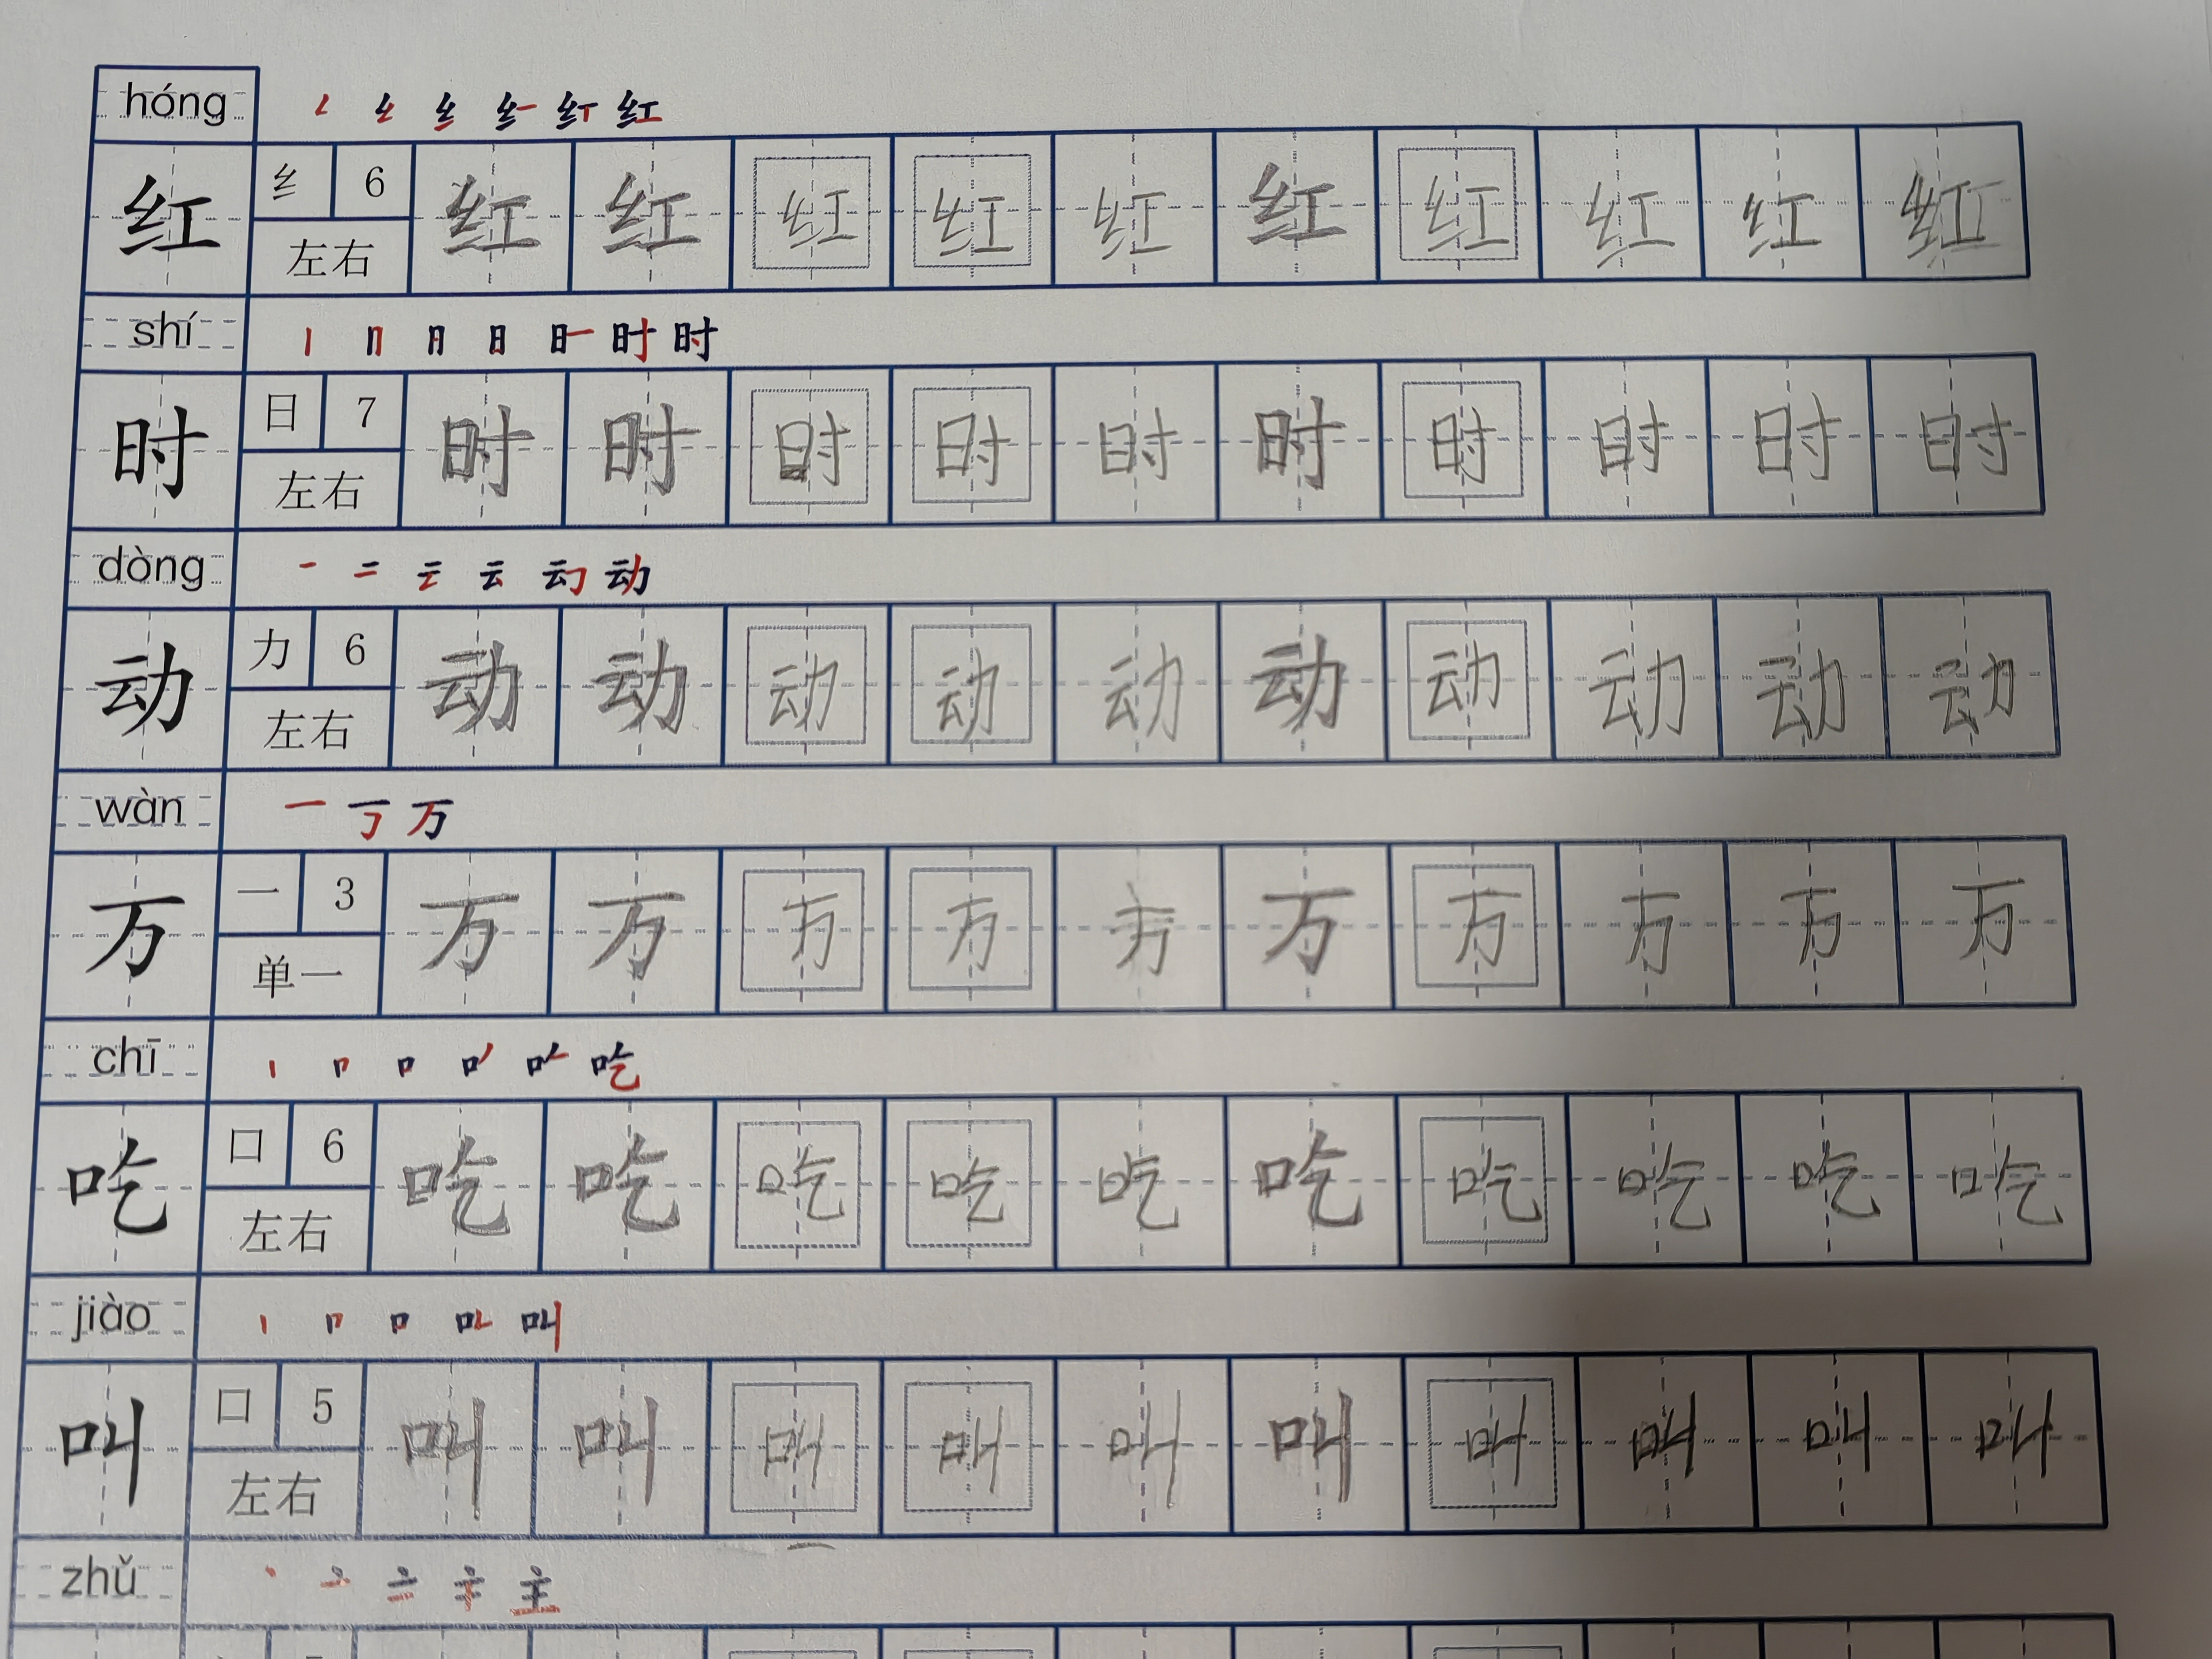 hóng
𠃋 纟 纟 纟一 纟丅 红
红 纟 6 红 红 红 红 红 红 红 红 红 红
左右
shí
丨 冂 日 日 日一 时 时
时 日 7 时 时 时 时 时 时 时 时 时 时
左右
dòng
一 二 云 云 动 动
动 力 6 动 动 动 动 动 动 动 动 动 动
左右
wàn
一 丆 万
万 一 3 万 万 万 万 方 万 万 万 万 万
单一
chī
丨 口 口 口丿 口𠂉 吃
吃 口 6 吃 吃 吃 吃 吃 吃 吃 吃 吃 吃
左右
jiào
丨 口 口 叫 叫
叫 口 5 叫 叫 叫 叫 叫 叫 叫 叫 叫 叫
左右
zhǔ
丶 亠 主 主 主